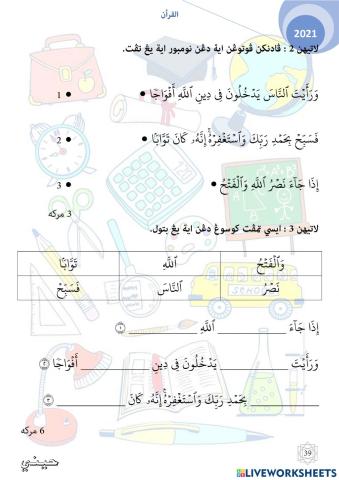 القرآن
2021
لاتيهن 2 : ڤادنكن ڤوتوڠن اية دڠن نومبور اية يڠ تڤت.
وَرَأَيْتَ ٱلنَّاسَ يَدْخُلُونَ فِى دِينِ ٱللَّهِ أَفْوَاجًا • • 1
فَسَبِّحْ بِحَمْدِ رَبِّكَ وَٱسْتَغْفِرْهُ ۚ إِنَّهُۥ كَانَ تَوَّابًۢا • • 2
إِذَا جَآءَ نَصْرُ ٱللَّهِ وَٱلْفَتْحُ • • 3
3 مركه
لاتيهن 3 : ايسي تمڤت كوسوڠ دڠن اية يڠ بتول.
وَٱلْفَتْحُ ٱللَّهِ تَوَّابًۢا
نَصْرُ ٱلنَّاسَ فَسَبِّحْ
إِذَا جَآءَ ________ ٱللَّهِ ________ ١
وَرَأَيْتَ ________ يَدْخُلُونَ فِى دِينِ ________ أَفْوَاجًا ٢
________ بِحَمْدِ رَبِّكَ وَٱسْتَغْفِرْهُ ۚ إِنَّهُۥ كَانَ ________ ٣
6 مركه
39
LIVEWORKSHEETS